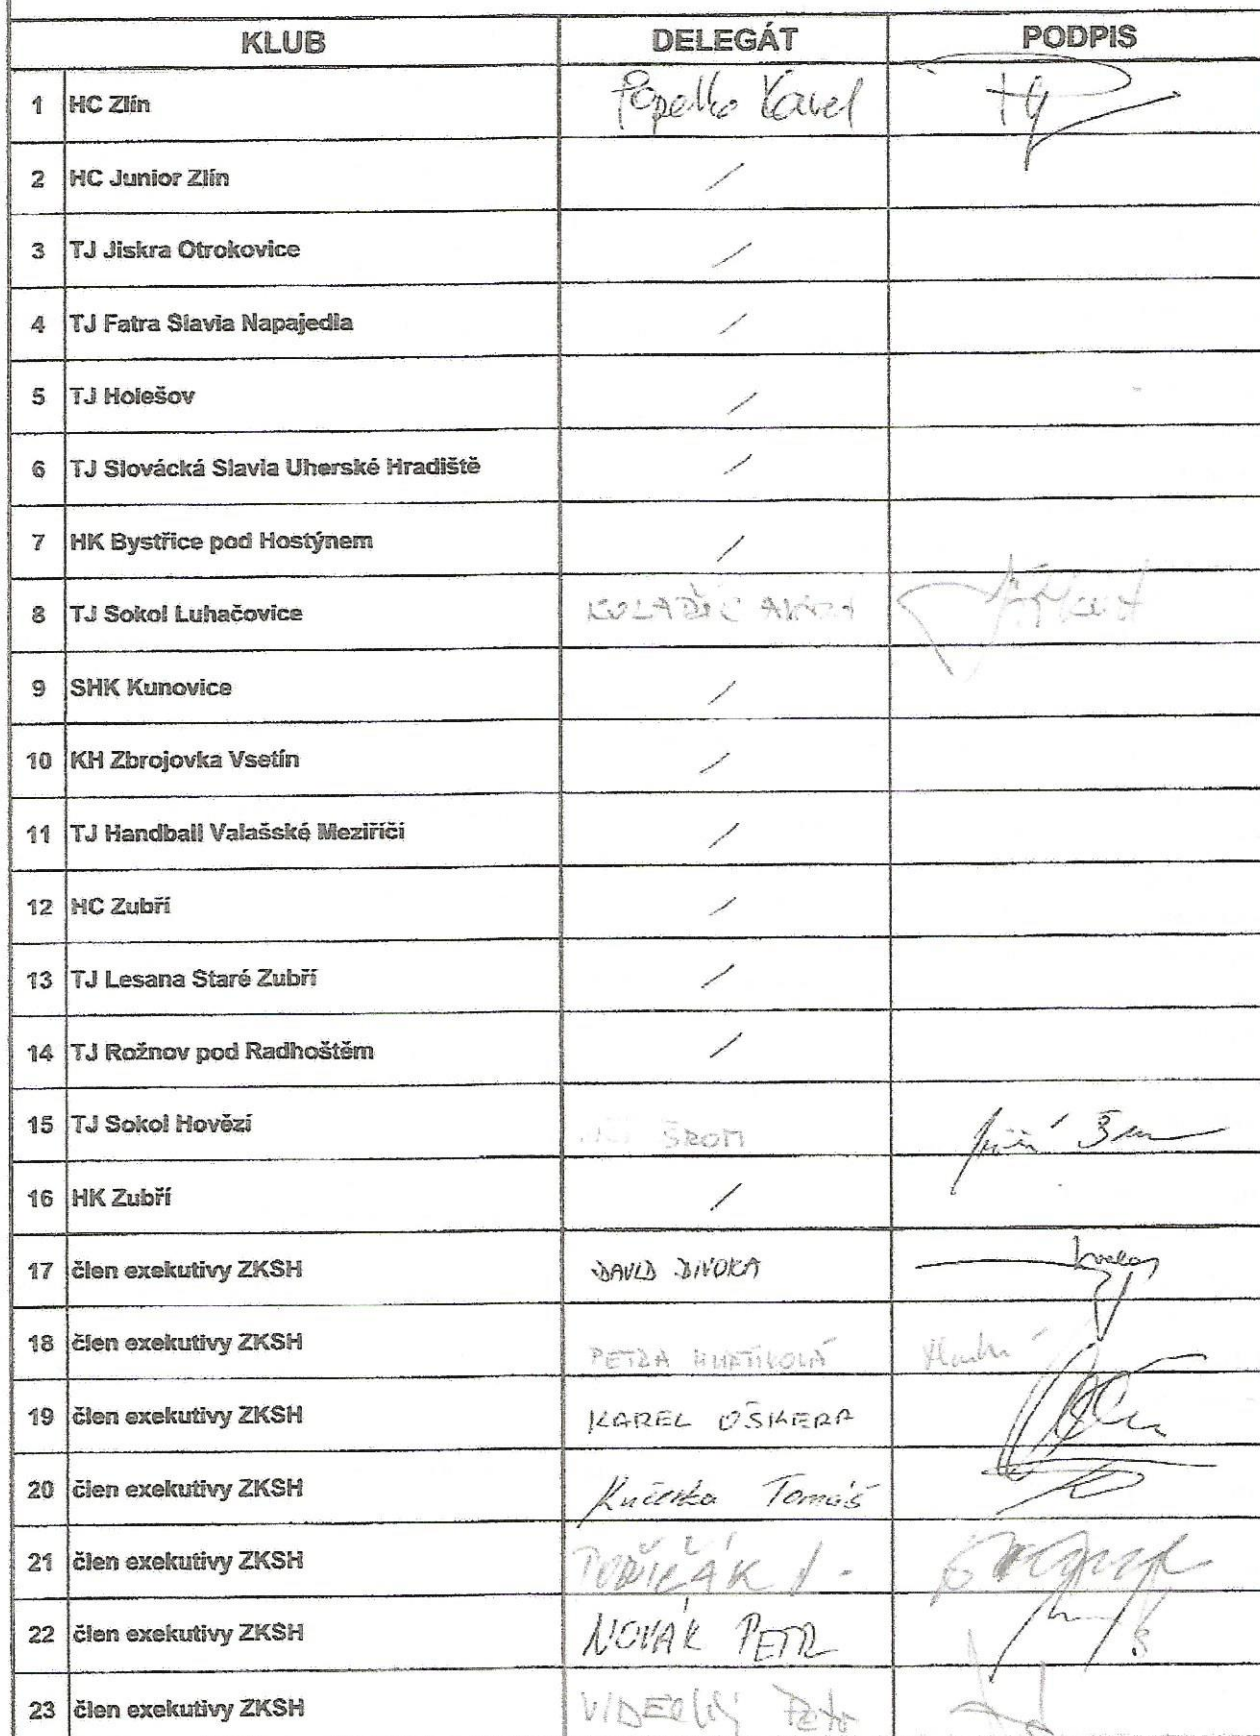 KLUB DELEGÁT PODPIS
1 HC Zlín Popelka Karel
2 HC Junior Zlín /
3 TJ Jiskra Otrokovice /
4 TJ Fatra Slavia Napajedla /
5 TJ Holešov /
6 TJ Slovácká Slavia Uherské Hradiště /
7 HK Bystřice pod Hostýnem /
8 TJ Sokol Luhačovice
9 SHK Kunovice /
10 KH Zbrojovka Vsetín /
11 TJ Handball Valašské Meziříčí /
12 HC Zubří /
13 TJ Lesana Staré Zubří /
14 TJ Rožnov pod Radhoštěm /
15 TJ Sokol Hovězí ŠROM
16 HK Zubří /
17 člen exekutivy ZKSH DAVID DIVOKA
18 člen exekutivy ZKSH PETRA
19 člen exekutivy ZKSH KAREL OŠKERA
20 člen exekutivy ZKSH Kučerka Tomáš
21 člen exekutivy ZKSH
22 člen exekutivy ZKSH NOVÁK PETR
23 člen exekutivy ZKSH Petr